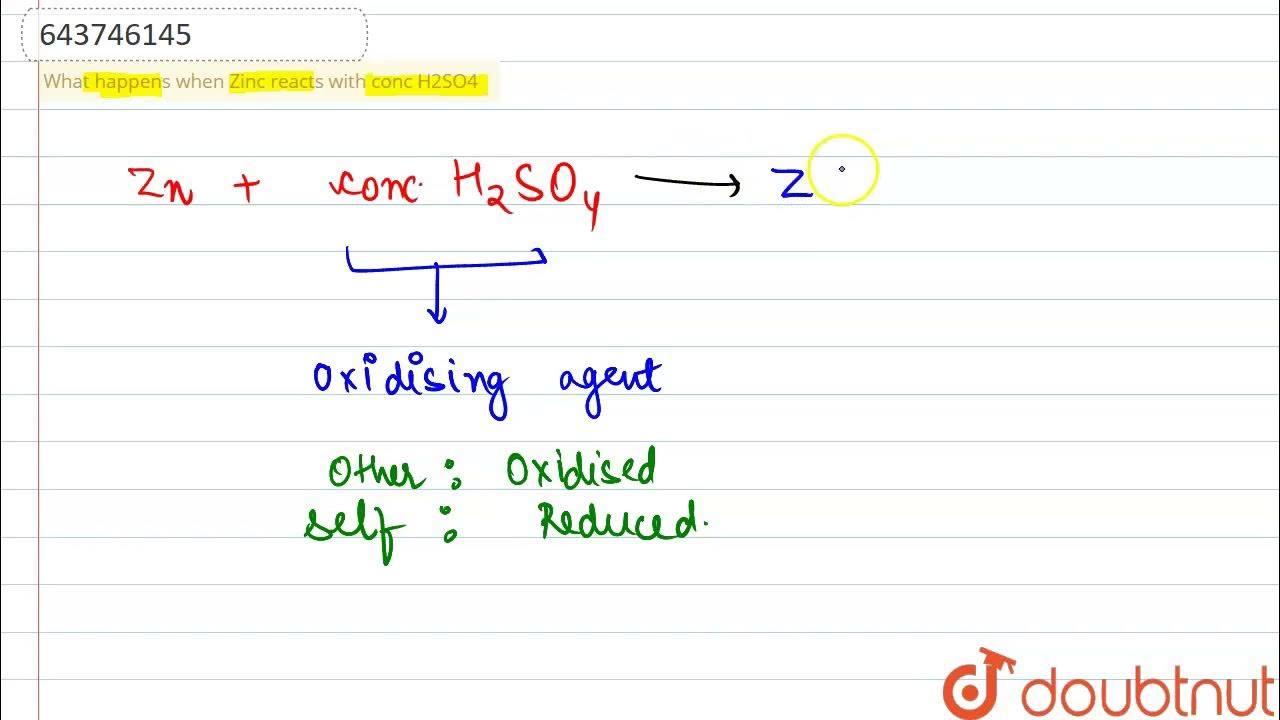 643746145
What happens when Zinc reacts with conc H2SO4
Zn + conc. H₂SO₄ ⟶ Z
Oxidising agent
Other : Oxidised
self : Reduced.
doubtnut